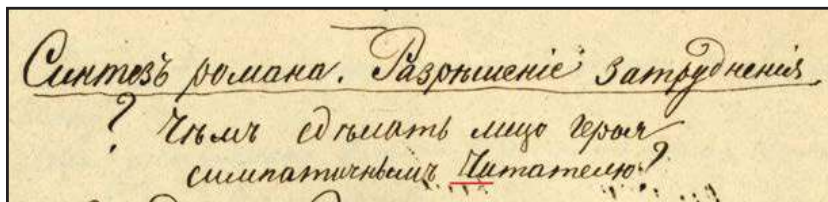 Синтезъ романа. Разрѣшеніе затрудненія.
? Чѣмъ сдѣлать лицо героя
симпатичнымъ читателю?